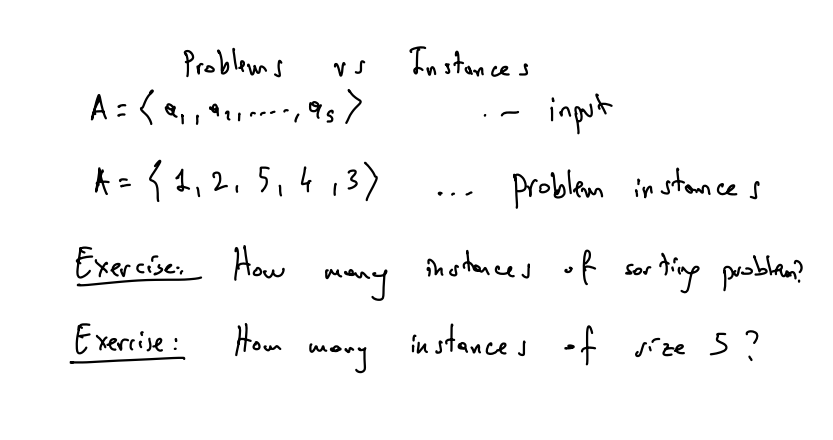 Problems vs Instances
A = ⟨ a₁, a₂, ...., a₅ ⟩ ... input
A = ⟨ 1, 2, 5, 4, 3 ⟩ ... problem instances
Exercise: How many instances of sorting problem?
Exercise: How many instances of size 5?